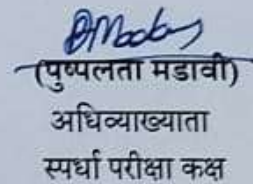 (पुष्पलता मडावी)
अधिव्याख्याता
स्पर्धा परीक्षा कक्ष